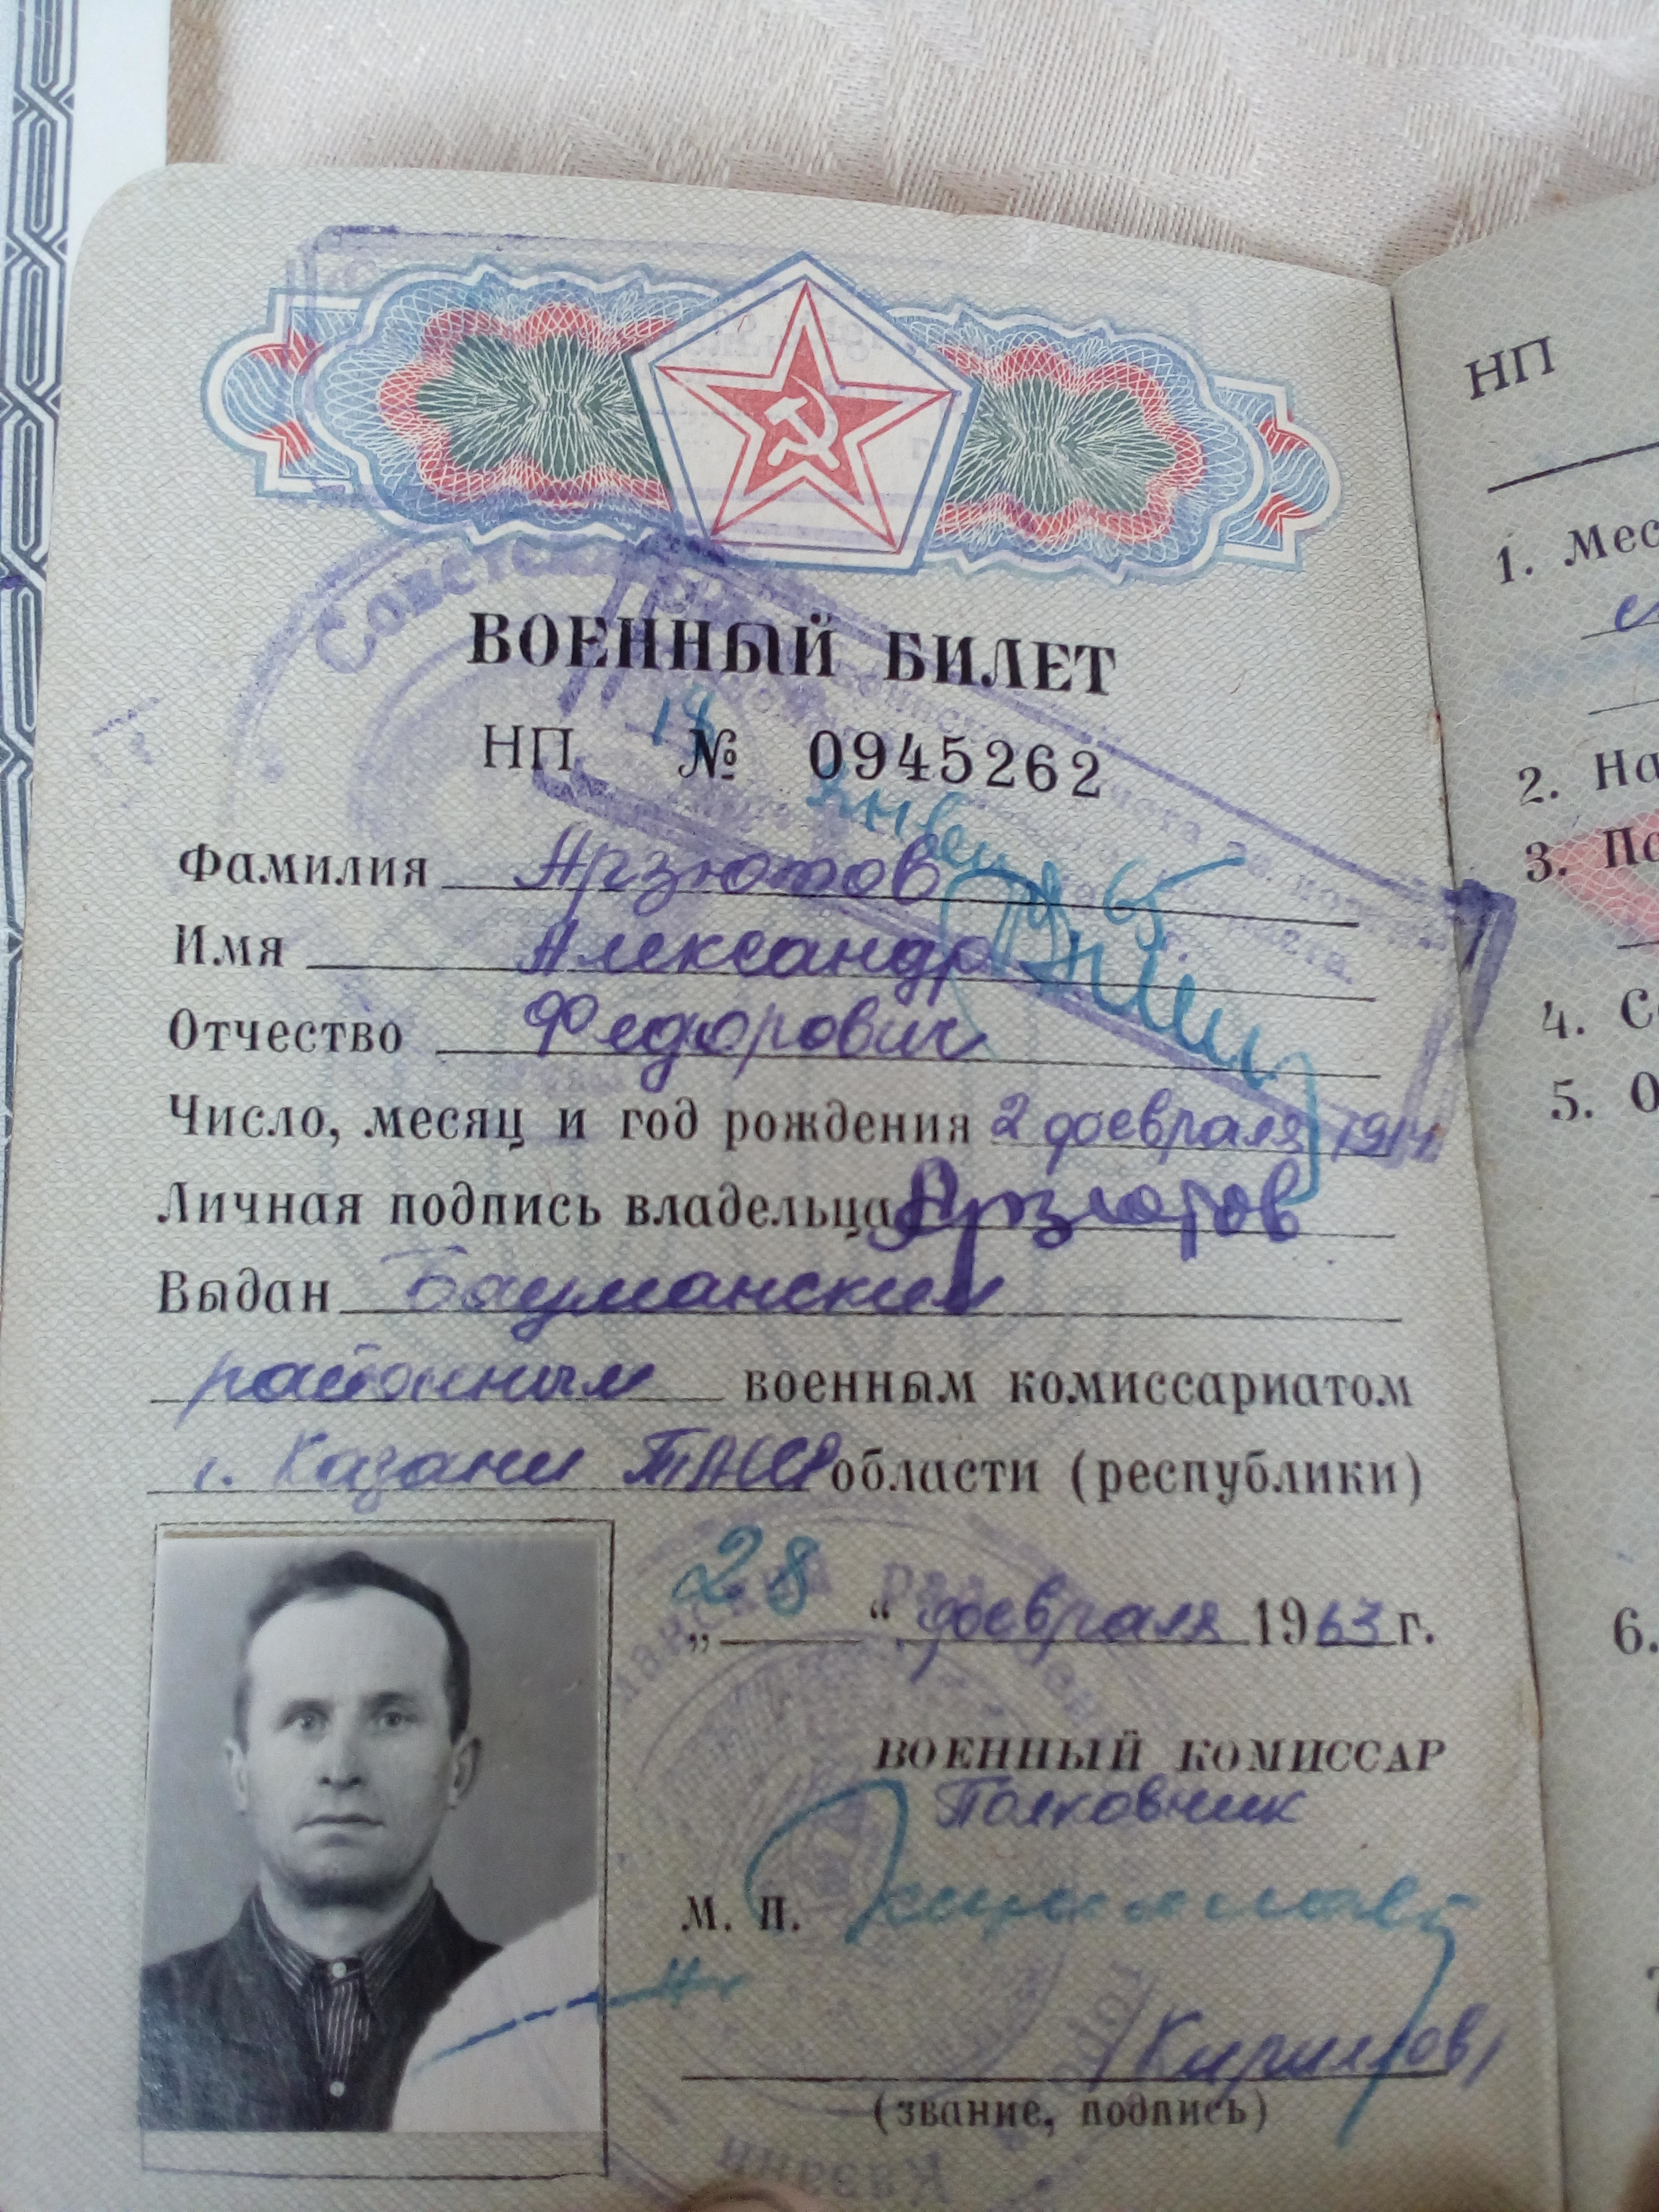 ВОЕННЫЙ БИЛЕТ
НП № 0945262
Фамилия Арзютов
Имя Александр
Отчество Федорович
Число, месяц и год рождения 2 февраля 1914
Личная подпись владельца Арзютов
Выдан Бауманским
районным военным комиссариатом
г. Казани ТАССР области (республики)
„28“ февраля 1963 г.
ВОЕННЫЙ КОМИССАР
Полковник
М. П.
(звание, подпись)
Советск
Казани
НП
1. Мес
2. На
3. По
4. Со
5. О
6.